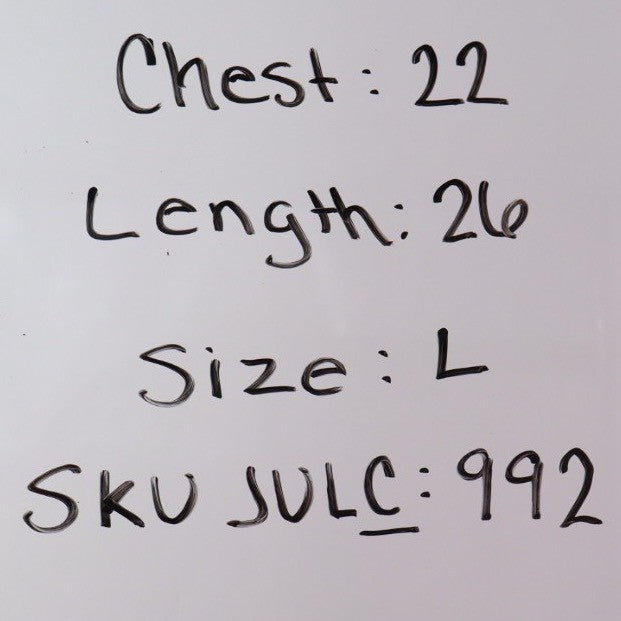 Chest: 22
Length: 26
Size: L
SKU JULC: 992